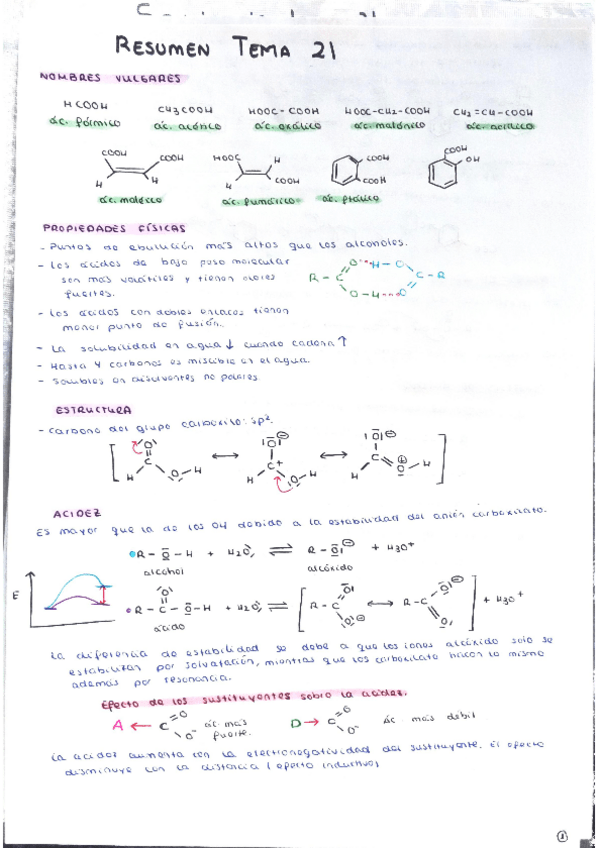 RESUMEN TEMA 21
NOMBRES VULGARES
HCOOH CH3COOH HOOC-COOH HOOC-CH2-COOH CH2=CH-COOH
ác. fórmico ác. acético ác. oxálico ác. malónico ác. acrílico
COOH COOH HOOC H COOH COOH OH
H H H COOH COOH
ác. maleico ác. fumárico ác. ftálico
PROPIEDADES FÍSICAS
- Puntos de ebullución más altos que los alcoholes.
- Los ácidos de bajo peso molecular
son más volátiles y tienen olores
fuertes.
R-C O H-O C-R
O-H O
- Los ácidos con dobles enlaces tienen
menor punto de fusión.
- La solubilidad en agua ↓ cuando cadena ↑
- Hasta 4 carbonos es miscible en el agua.
- Solubles en disolventes no polares
ESTRUCTURA
- Carbono del grupo carboxilo: sp².
ACIDEZ
Es mayor que la de los OH debido a la estabilidad del anión carboxilato.
R-O-H + H2O ⇌ R-O⊖ + H3O+
alcohol alcóxido
E
R-C-O-H + H2O ⇌ [R-C ↔ R-C] + H3O+
ácido
La diferencia de estabilidad se debe a que los iones alcóxido solo se
estabilizan por solvatación, mientras que los carboxilato hacen lo mismo
además por resonancia.
Efecto de los sustituyentes sobre la acidez.
A ← C O O⁻ ác más fuerte. D → C O O⁻ ác más débil
La acidez aumenta con la electronegatividad del sustituyente. El efecto
disminuye con la distancia (efecto inductivo)
1